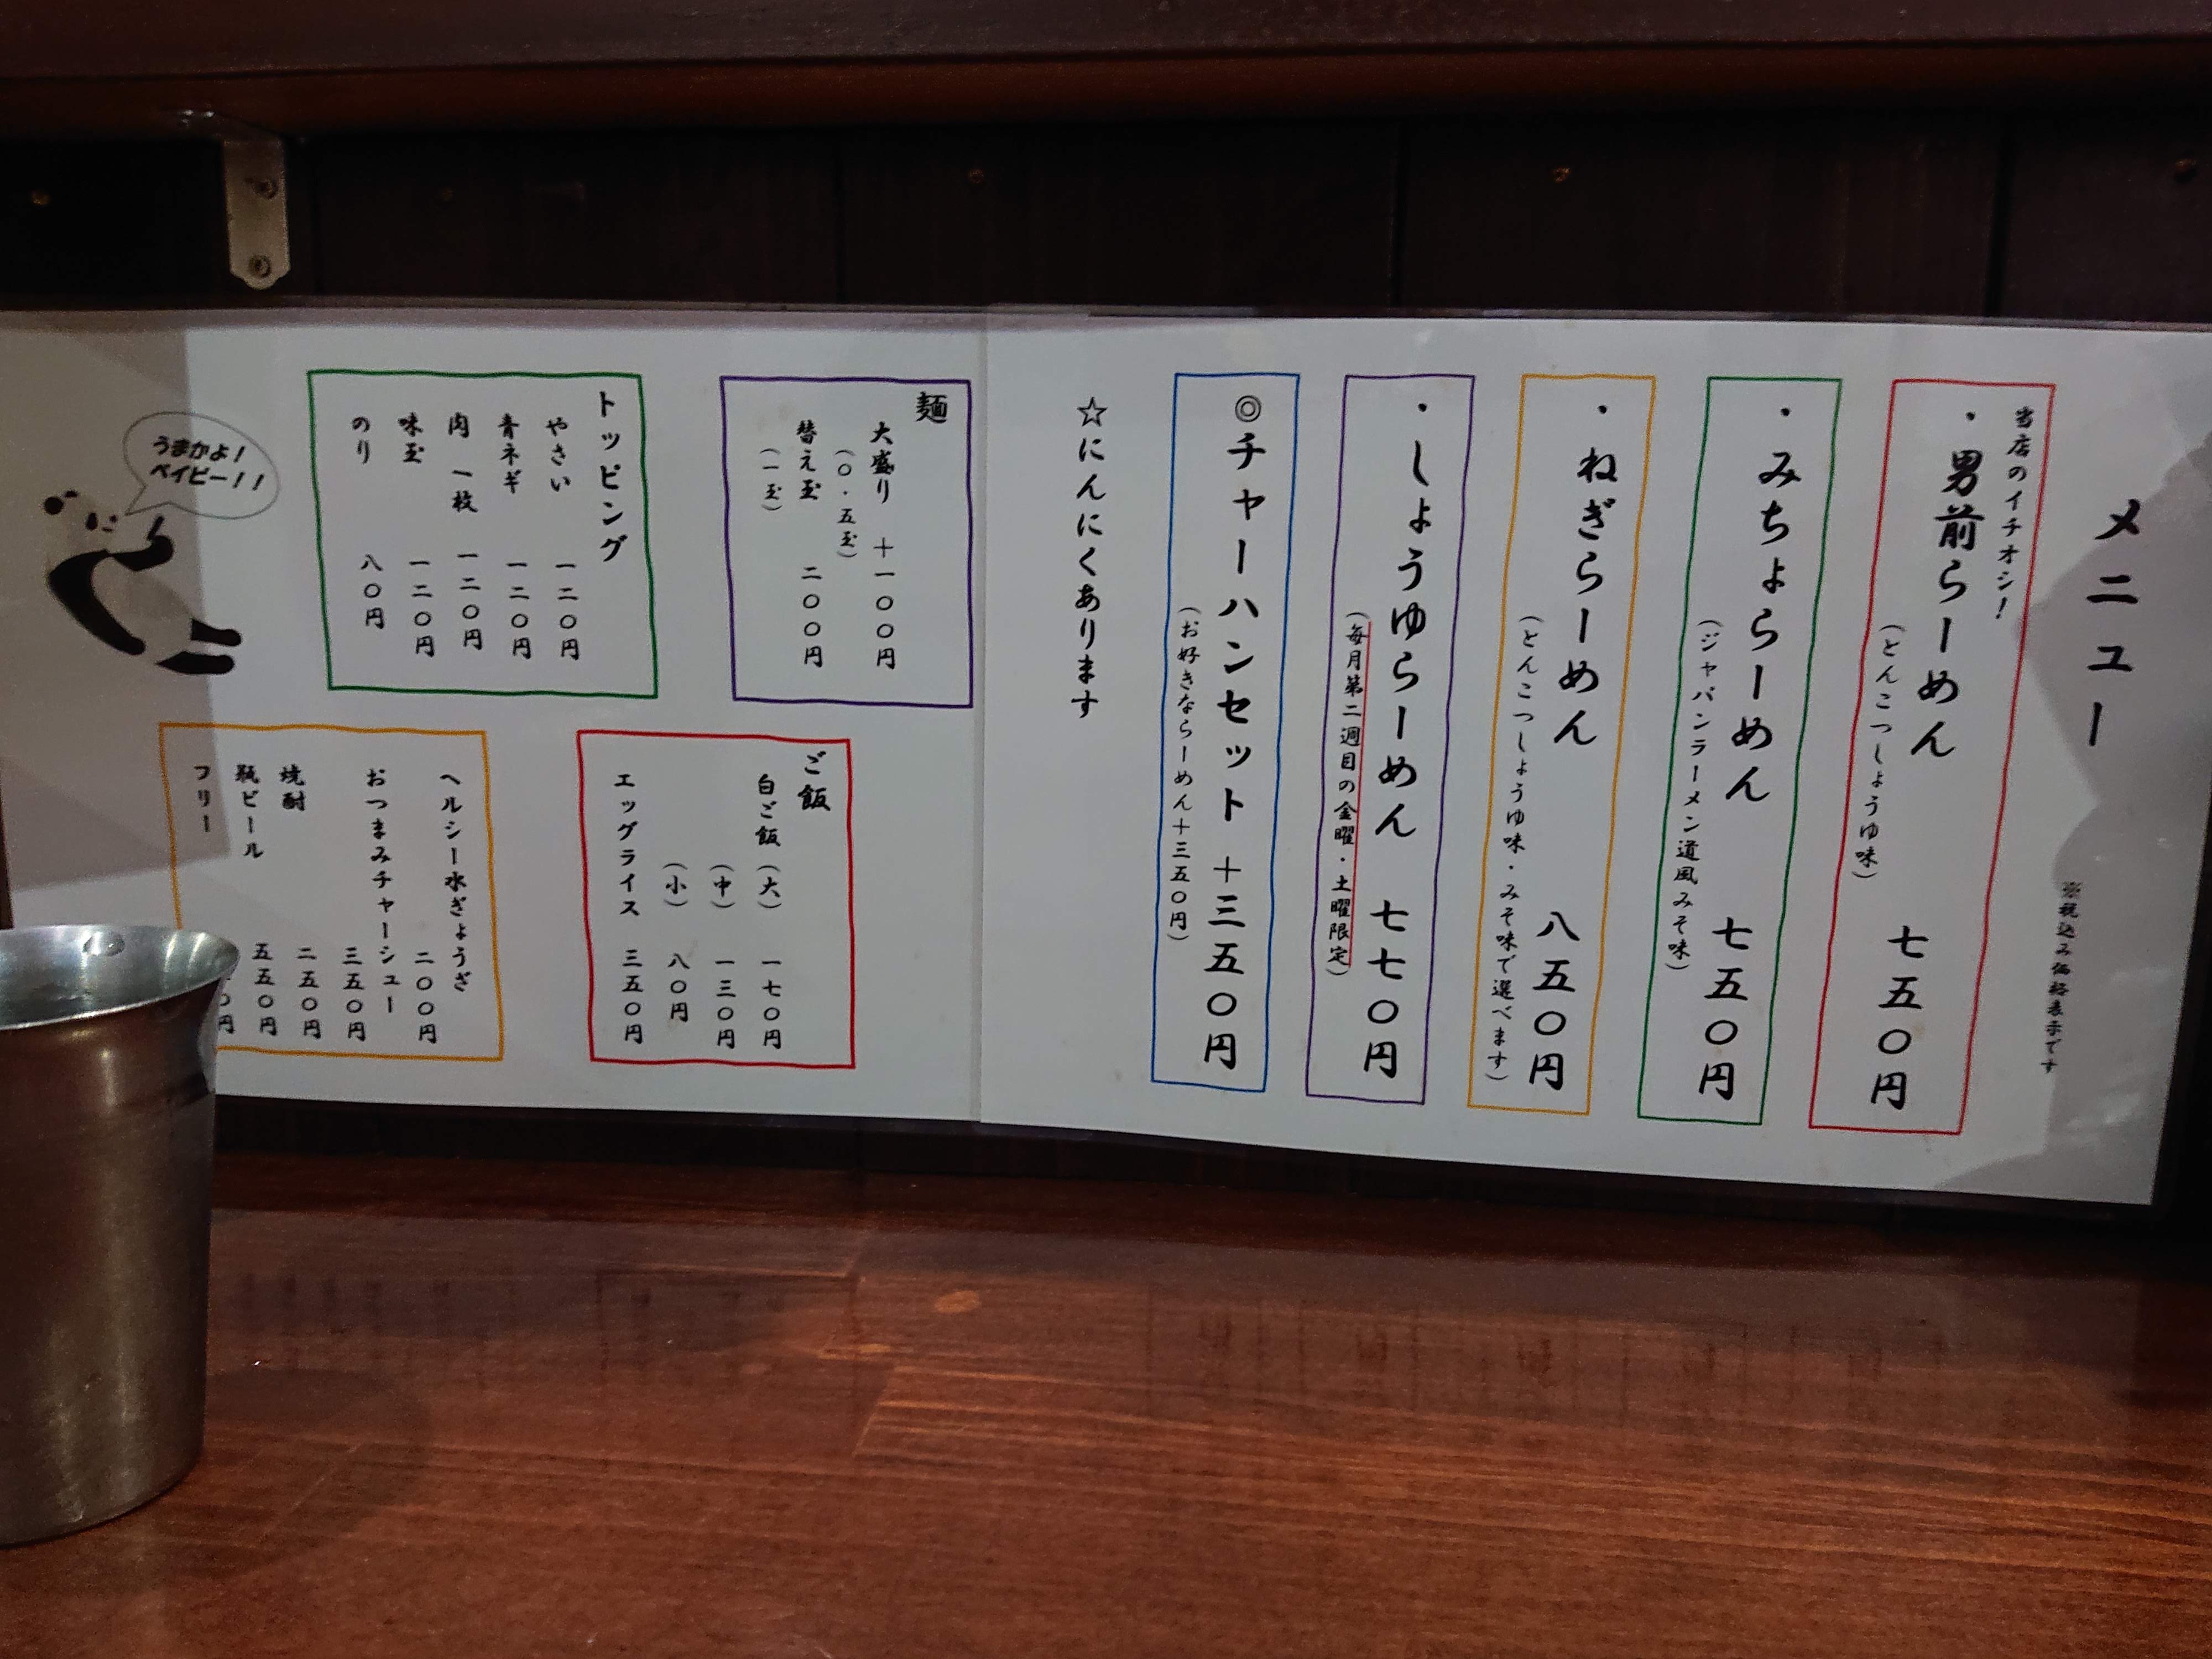 メニュー
※税込み価格表示です
当店のイチオシ！
・男前らーめん 七五〇円
（とんこつしょうゆ味）
・みちょらーめん 七五〇円
（ジャパンラーメン道風みそ味）
・ねぎらーめん 八五〇円
（とんこつしょうゆ味・みそ味で選べます）
・しょうゆらーめん 七七〇円
（毎月第二週目の金曜・土曜限定）
◎チャーハンセット ＋三五〇円
（お好きならーめん＋三五〇円）
☆にんにくあります
麺
大盛り ＋一〇〇円
（〇・五玉）
替え玉 二〇〇円
（一玉）
トッピング
やさい 一二〇円
青ネギ 一二〇円
肉 一枚 一二〇円
味玉 一二〇円
のり 八〇円
うまかよ！
ベイビー！！
ご飯
白ご飯（大） 一七〇円
（中） 一三〇円
（小） 八〇円
エッグライス 三五〇円
ヘルシー水ぎょうざ 二〇〇円
おつまみチャーシュー 三五〇円
焼酎 二五〇円
瓶ビール 五五〇円
フリー 〇円